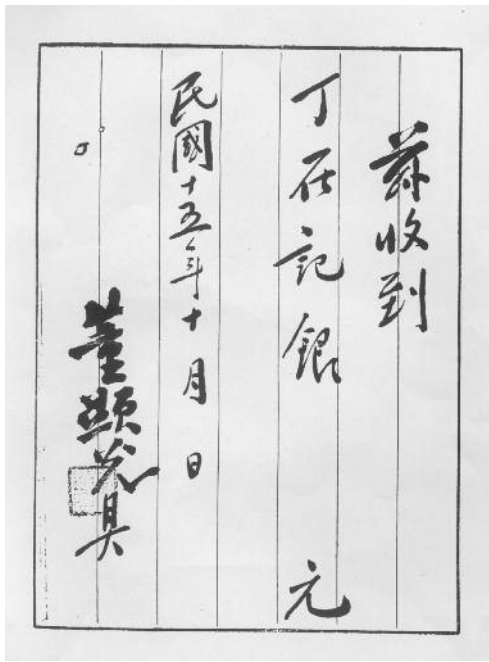 茲收到
丁在記銀 元
民國十五年十月 日
董顯光具